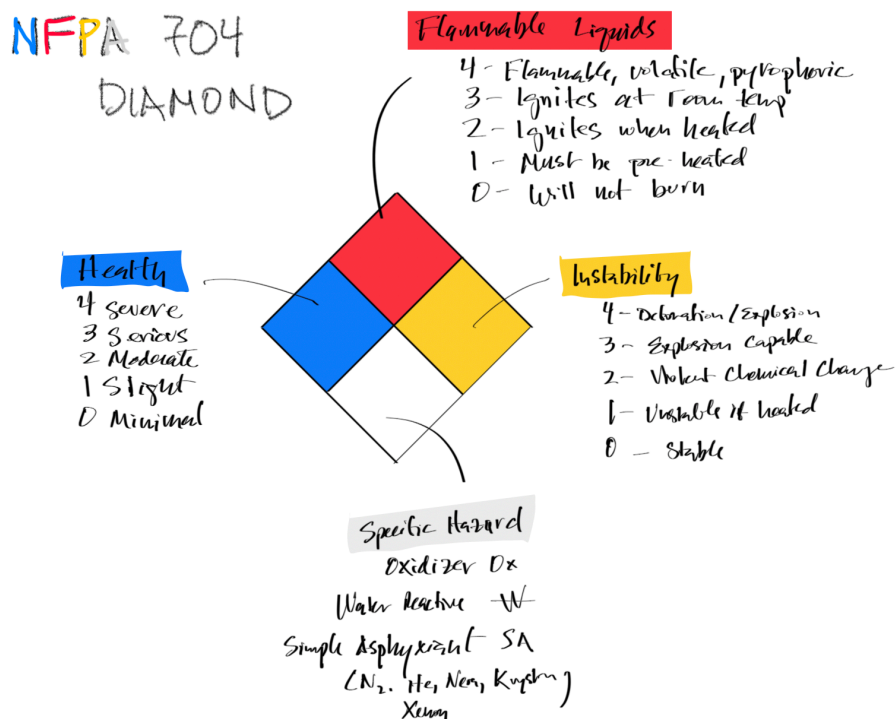 NFPA 704
DIAMOND
Flammable Liquids
4 - Flammable, volatile, pyrophoric
3 - Ignites at room temp
2 - Ignites when heated
1 - Must be pre-heated
0 - Will not burn
Health
4 Severe
3 Serious
2 Moderate
1 Slight
0 Minimal
Instability
4 - Detonation / Explosion
3 - Explosion Capable
2 - Violent Chemical Change
1 - Unstable if heated
0 - Stable
Specific Hazard
Oxidizer Ox
Water Reactive W
Simple Asphyxiant SA
(N2. He, Neon, Krypton,
Xenon